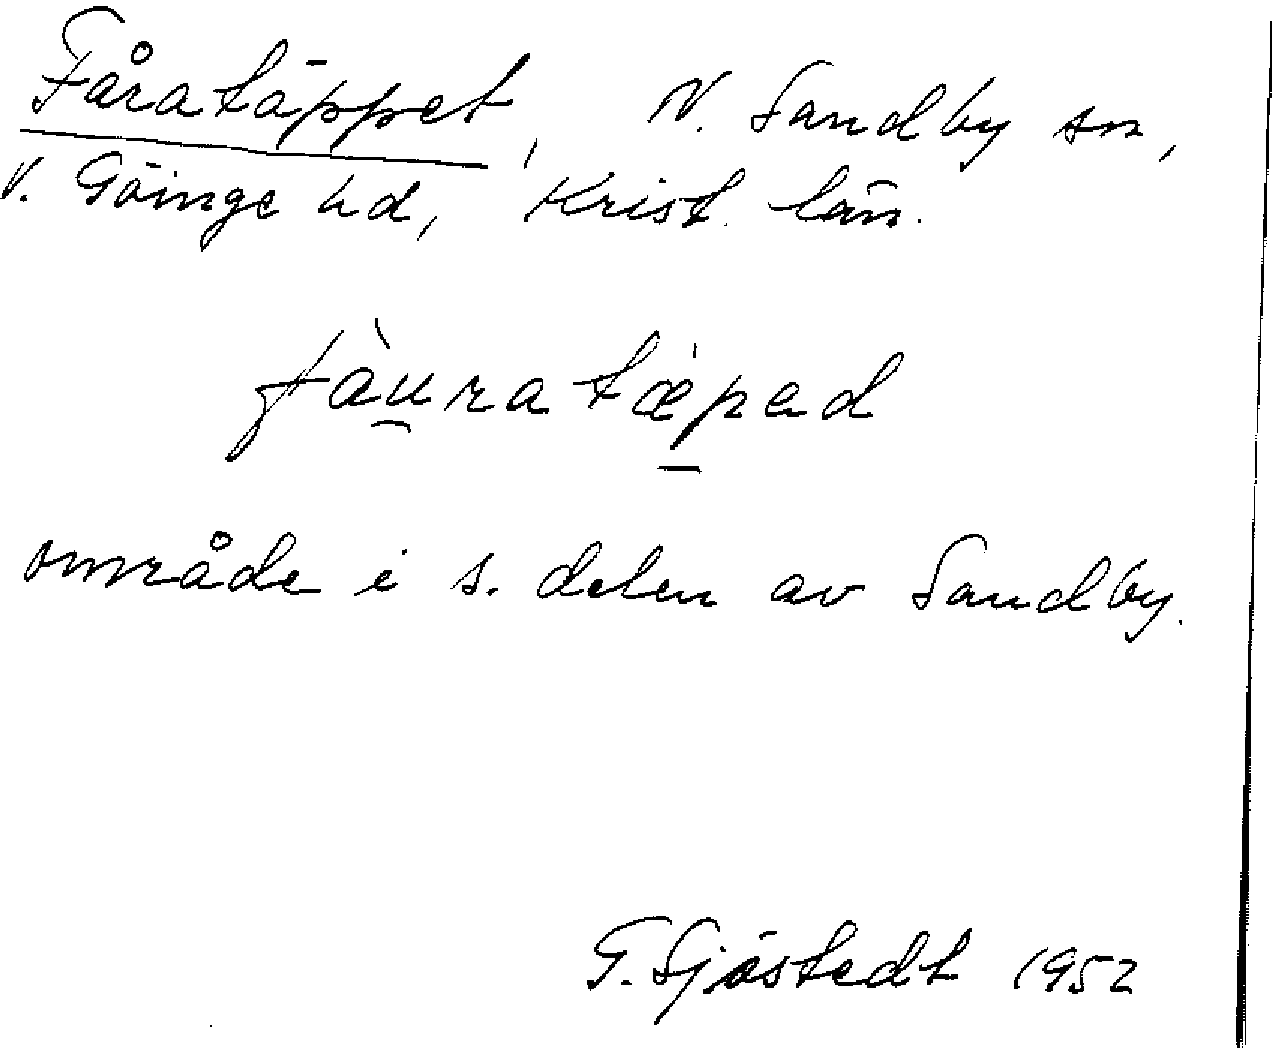 Fåratäppet, N. Sandby sn,
V. Göinge hd, Krist. län.
fàu̯ratæ̍p̠ed
område i s. delen av Sandby.
G. Sjöstedt 1952